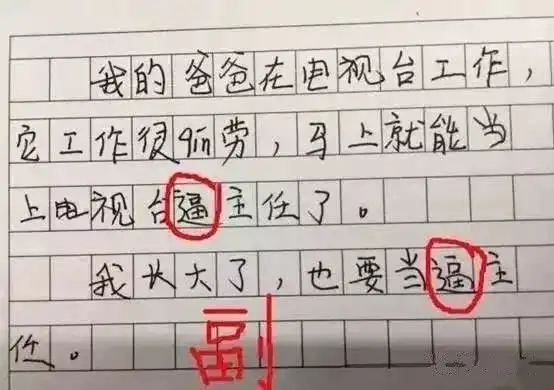 我的爸爸在电视台工作，
它工作很qin劳，马上就能当
上电视台逼主任了。
我长大了，也要当逼主
任。
副